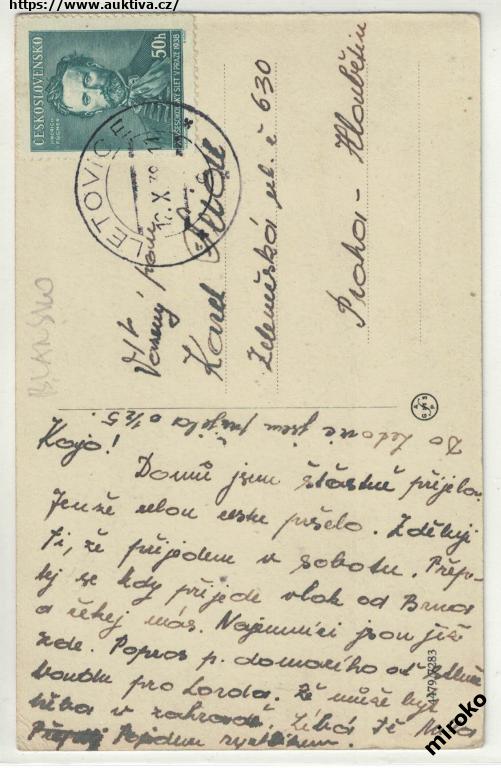 https://www.auktiva.cz/
ČESKOSLOVENSKO
50h
JINDŘICH FÜGNER
VŠESOKOLSKÝ SLET V PRAZE 1938
LETOVICE
Vážený pan
Karel
Zelenečská ul. č 630
Praha - Hloubětín
BLANSKO
Do Letovic jsem přijela o 1/2 5.
Kajo!
Domů jsem šťastně přijela.
Jenže celou cestu pršelo. Zděluji
Ti, že přijedem v sobotu. Přeptej
se kdy přijede vlak od Brna
a čekej nás. Nájemníci jsou již
zde. Popros p. domácího od
boudu pro Lorda. Že může být
třeba v zahradě. Líbá Tě
Pojedem rychlíkem.
47977283
miroko